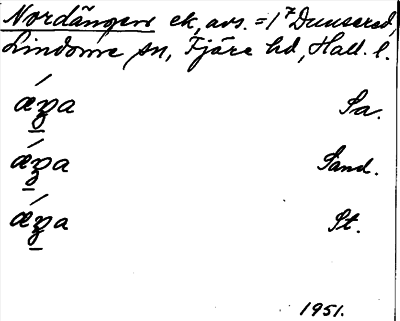 Nordängens ek, avs. = 1⁷ Dunsered,
Lindome sn, Fjäre hd, Hall. l.
Sa.
Sand.
St.
1951.